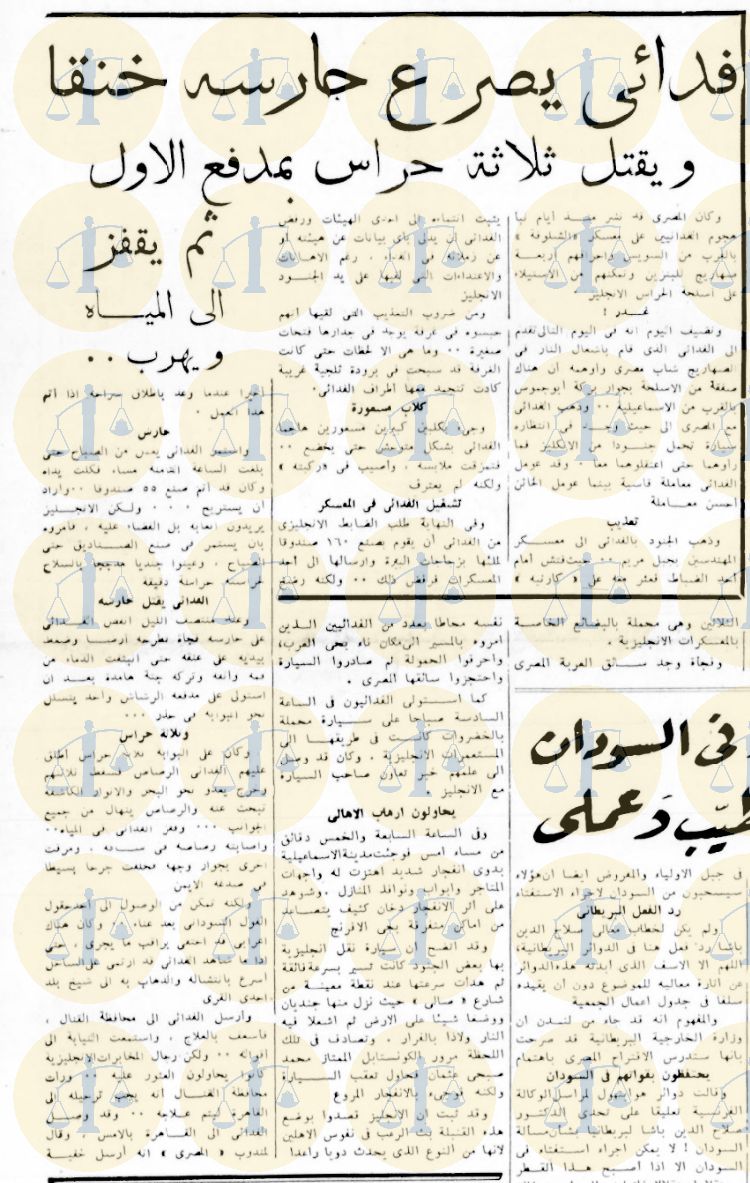 فدائى يصرع حارسه خنقا
ويقتل ثلاثة حراس بمدفع الاول
ثم يقفز
الى المياه
ويهرب ..
وكان المصرى قد نشر منذ أيام نبأ
هجوم الفدائيين على معسكر «الشلوفة»
بالقرب من السويس واحراقهم أربعة
صهاريج للبنزين وتمكنهم من الاستيلاء
على أسلحة الحراس الانجليز
غدر !
ونضيف اليوم انه فى اليوم التالى تقدم
الى الفدائى الذى قام باشعال النار فى
الصهاريج شاب مصرى وأوهمه أن هناك
صفقة من الاسلحة بجوار بركة أبوجموس
بالقرب من الاسماعيلية ٠٠ وذهب الفدائى
مع المصرى الى حيث وجد فى انتظاره
سيارة تحمل جنودا من الانكليز فما
رأوهما حتى اعتقلوهما معا ٠ وقد عومل
الفدائى معاملة قاسية بينما عومل الخائن
أحسن معاملة
تعذيب
وذهب الجنود بالفدائى الى معسكر
المهندسين بجبل مريم ٠٠ حيث فتش أمام
أحد الضباط فعثر معه على «كارنيه»
يثبت انتماءه الى احدى الهيئات ورفض
الفدائى أن يدلى بأى بيانات عن هيئته أو
عن زملائه فى الفداء ، رغم الاهانات
والاعتداءات التى لقيها على يد الجنود
الانجليز
ومن ضروب التعذيب التى لقيها انهم
حبسوه فى غرفة يوجد فى جدارها فتحات
صغيرة ٠٠ وما هى الا لحظات حتى كانت
الغرفة قد سبحت فى برودة ثلجية غريبة
كادت تتجمد معها أطراف الفدائى٠
كلاب مسعورة
وجىء بكلبين كبيرين مسعورين هاجما
الفدائى بشكل متوحش حتى يخضع ٠٠
فتمزقت ملابسه ، وأصيب فى «ركبته»
ولكنه لم يعترف
تشغيل الفدائى فى المعسكر
وفى النهاية طلب الضابط الانجليزى
من الفدائى أن يقوم بصنع ١٦٠ صندوقا
لملئها بزجاجات البيرة وارسالها الى أحد
المعسكرات فرفض ذلك ٠٠ ولكنه رضخ
أخيرا عندما وعد باطلاق سراحه اذا أتم
هذا العمل ٠
حارس
واستمر الفدائى يعمل من الصباح حتى
بلغت الساعة الثامنة مساء فكلت يداه
وكان قد أتم صنع ٥٥ صندوقا ٠٠ وأراد
أن يستريح ٠٠٠ ولكن الانجليز
يريدون اتعابه بل القضاء عليه ، فأمروه
بأن يستمر فى صنع الصناديق حتى
الصباح ، وعينوا جنديا مدججا بالسلاح
لحراسته حراسة دقيقة
الفدائى يقتل حارسه
وعند منتصف الليل انقض الفدائى
على حارسه فجأة بطرحه أرضا وضغط
بيديه على عنقه حتى انبثقت الدماء من
فمه وأنفه وتركه جثة هامدة بعد أن
استولى على مدفعه الرشاش وأخذ يتسلل
نحو البوابة فى حذر ٠٠٠
وثلاثة حراس
وكان على البوابة ثلاثة حراس أطلق
عليهم الفدائى الرصاص فسقط ثلاثتهم
وخرج يعدو نحو البحر والانوار الكاشفة
تبحث عنه والرصاص ينهال من جميع
الجوانب ٠٠٠ وقفز الفدائى فى المياه٠٠
وأصابته رصاصة فى ساقه ، ومرقت
أخرى بجوار وجهه فخلفت جرحا بسيطا
فى صدغه الايمن
ولكنه تمكن من الوصول الى أحد حقول
الفول السودانى بعد عناء ، وكان هناك
اعرابى قد اختفى يراقب ما يجرى ، حتى
اذا ما شاهد الفدائى قد ارتمى على الساحل
أسرع بانتشاله والذهاب به الى شيخ بلد
احدى القرى
وأرسل الفدائى الى محافظة القنال ،
فأسعف بالعلاج ، واستمعت النيابة الى
أقواله ٠٠ ولكن رجال المخابرات الانجليزية
كانوا يحاولون العثور عليه ٠٠ ورأت
محافظة القنال أنه يجب ترحيله الى
القاهرة ليتم علاجه ٠٠ وقد وصل
الفدائى الى القاهرة بالامس ، وقال
لمندوب «المصرى» انه أرسل خفية
الثلاثين وهى محملة بالبضائع الخاصة
بالمعسكرات الانجليزية ٠
وفجأة وجد سائق العربة المصرى
نفسه محاطا بعدد من الفدائيين الذين
أمروه بالمسير الى مكان ناء بحى العرب،
واحرقوا الحمولة ثم صادروا السيارة
واحتجزوا سائقها المصرى ٠
كما استولى الفدائيون فى الساعة
السادسة صباحا على سيارة محملة
بالخضروات كانت فى طريقها الى
المستعمرات الانجليزية ، وكان قد وصل
الى علمهم خبر تعاون صاحب السيارة
مع الانجليز ٠
يحاولون ارهاب الاهالى
وفى الساعة السابعة والخمس دقائق
من مساء امس فوجئت مدينة الاسماعيلية
بدوى انفجار شديد اهتزت له واجهات
المتاجر وابواب ونوافذ المنازل ، وشوهد
على أثر الانفجار دخان كثيف يتصاعد
من اماكن متفرقة بحى الافرنج
وقد اتضح أن سيارة نقل انجليزية
بها بعض الجنود كانت تسير بسرعة فائقة
ثم هدأت سرعتها عند نقطة معينة من
شارع «صالى» حيث نزل منها جنديان
ووضعا شيئا على الارض ثم اشعلا فيه
النار ولاذا بالفرار ، وتصادف فى تلك
اللحظة مرور الكونستابل الممتاز محمد
صبحى عثمان فحاول تعقب السيارة
ولكنه فوجىء بالانفجار المروع
وقد ثبت ان الانجليز تصدوا بوضع
هذه القنبلة بث الرعب فى نفوس الاهلين
لانها من النوع الذى يحدث دويا راعدا
فى السودان
طيب وعملى
فى جبل الاولياء والمفروض أيضا ان هؤلاء
سيسحبون من السودان لاجراء الاستفتاء
رد الفعل البريطانى
ولم يكن لخطاب معالى صلاح الدين
باشا رد فعل هنا فى الدوائر البريطانية،
اللهم الا الاسف الذى أبدته هذه الدوائر
عن اثارة معاليه للموضوع دون أن يقيده
سلفا فى جدول اعمال الجمعية
والمفهوم انه قد جاء من لندن ان
وزارة الخارجية البريطانية قد صرحت
بأنها ستدرس الاقتراح المصرى باهتمام
يحتفظون بقواتهم فى السودان
وقالت دوائر هوايتهول لمراسل الوكالة
الفرنسية تعليقا على تحدى الدكتور
صلاح الدين باشا لبريطانيا بشأن مسألة
السودان ! لا يمكن اجراء استفتاء فى
السودان الا اذا أصبح هذا القطر